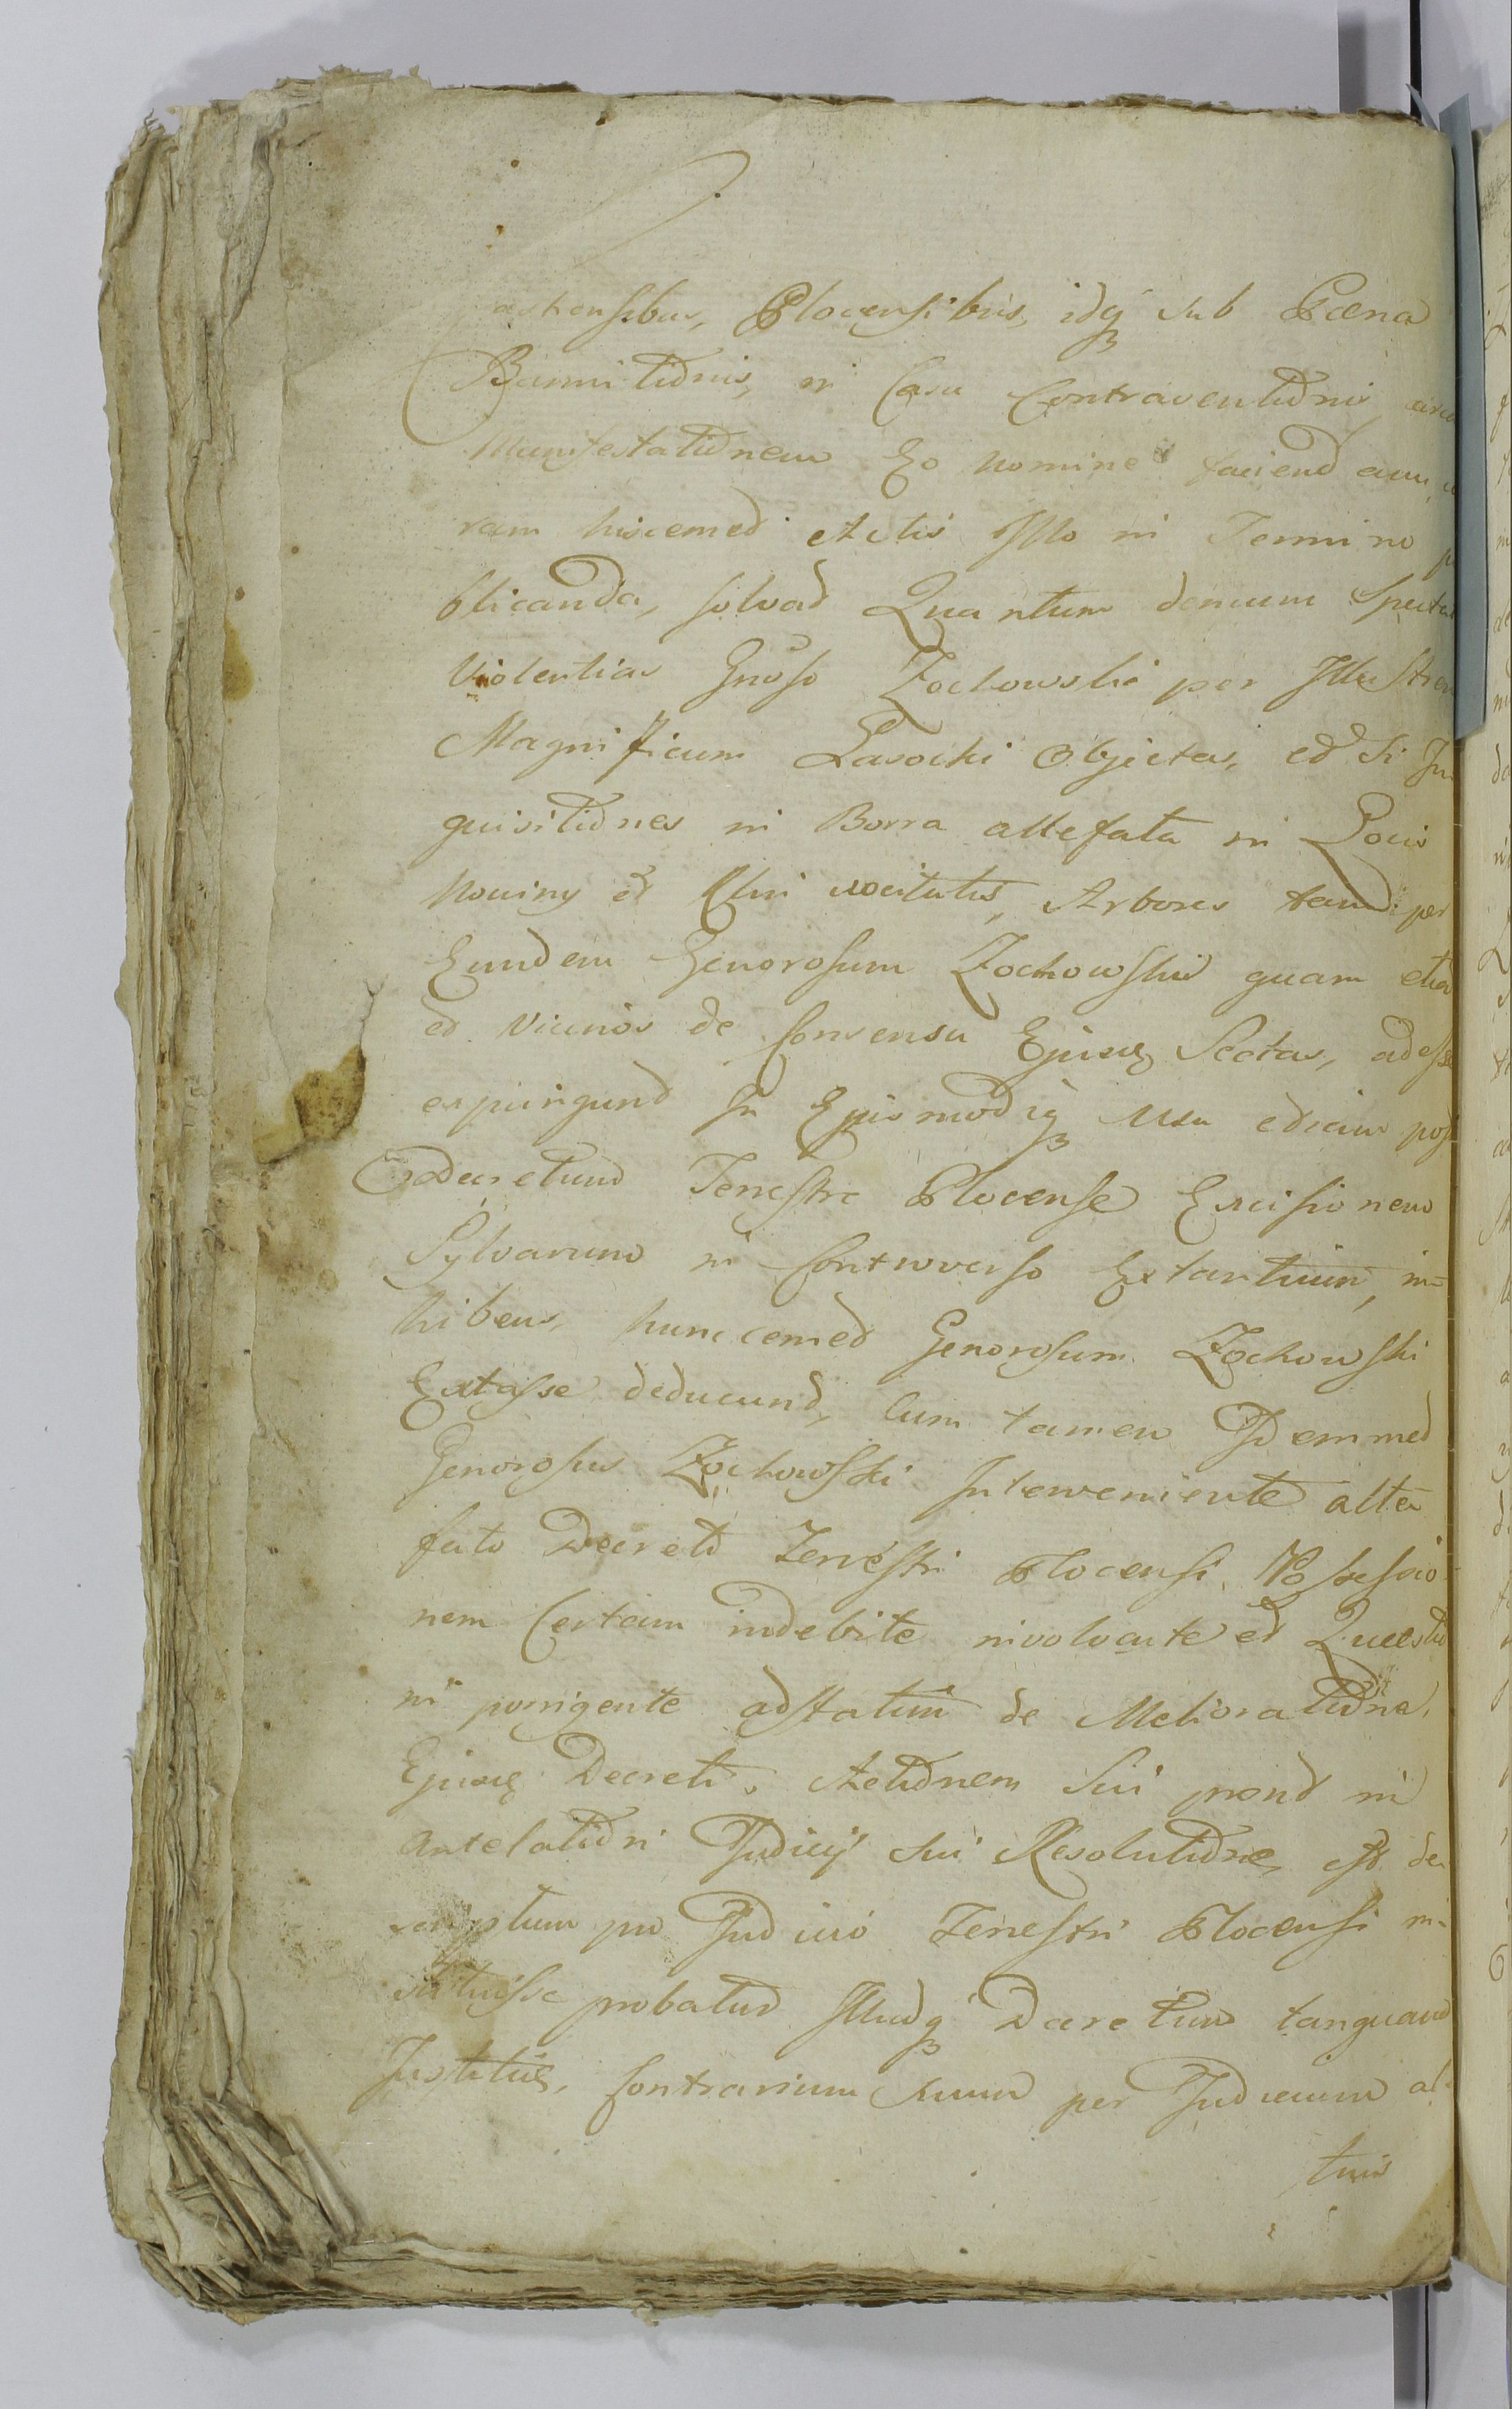 Castrensibus, Plocensibus, idq sub Poena
Bannitionis, in Casu Contraventionis, circa
Manifestationem Eo nomine faciend
ram hiscemet Actis Illo in Termino
blicanda, solvat Quantum demum Spectat
Violentias Gnoso Zochowski per Illustrem
Magnificum Lasocki Objectas, et si In
quisitiones in Borra attefata in Locis
Nowiny et vocitatis, Arbores tam per
Eundem Generosum Zochowski quam etia
et Vicinos de Consensu Ejusq Sectas, adesse
expurgunt In Ejusmodiq usu etiam post
Decretum Terrestre Plocense Excisionem
Sylvarum in Controverso Extantium, in=
hibens, huncemet Generosum Zochowski
Extasse deducunt, Cum tamen Idemmet
Generosus Zochowski Interveniente atte=
fato Decreto Terrestri Plocensi, Possessio
nem Certam indebite involvente et Questio
ni porrigente adstatim de Melioratione,
Ejusq Decreti, Actionem Sui
antelationi Judicij sui Resolutione, est de
scriptum pro Judicio Terrestri Plocensi in=
stituisse probatur Illudq Decretum tanquam
Justitiae, Contrarium suum per Judicium al=
tius